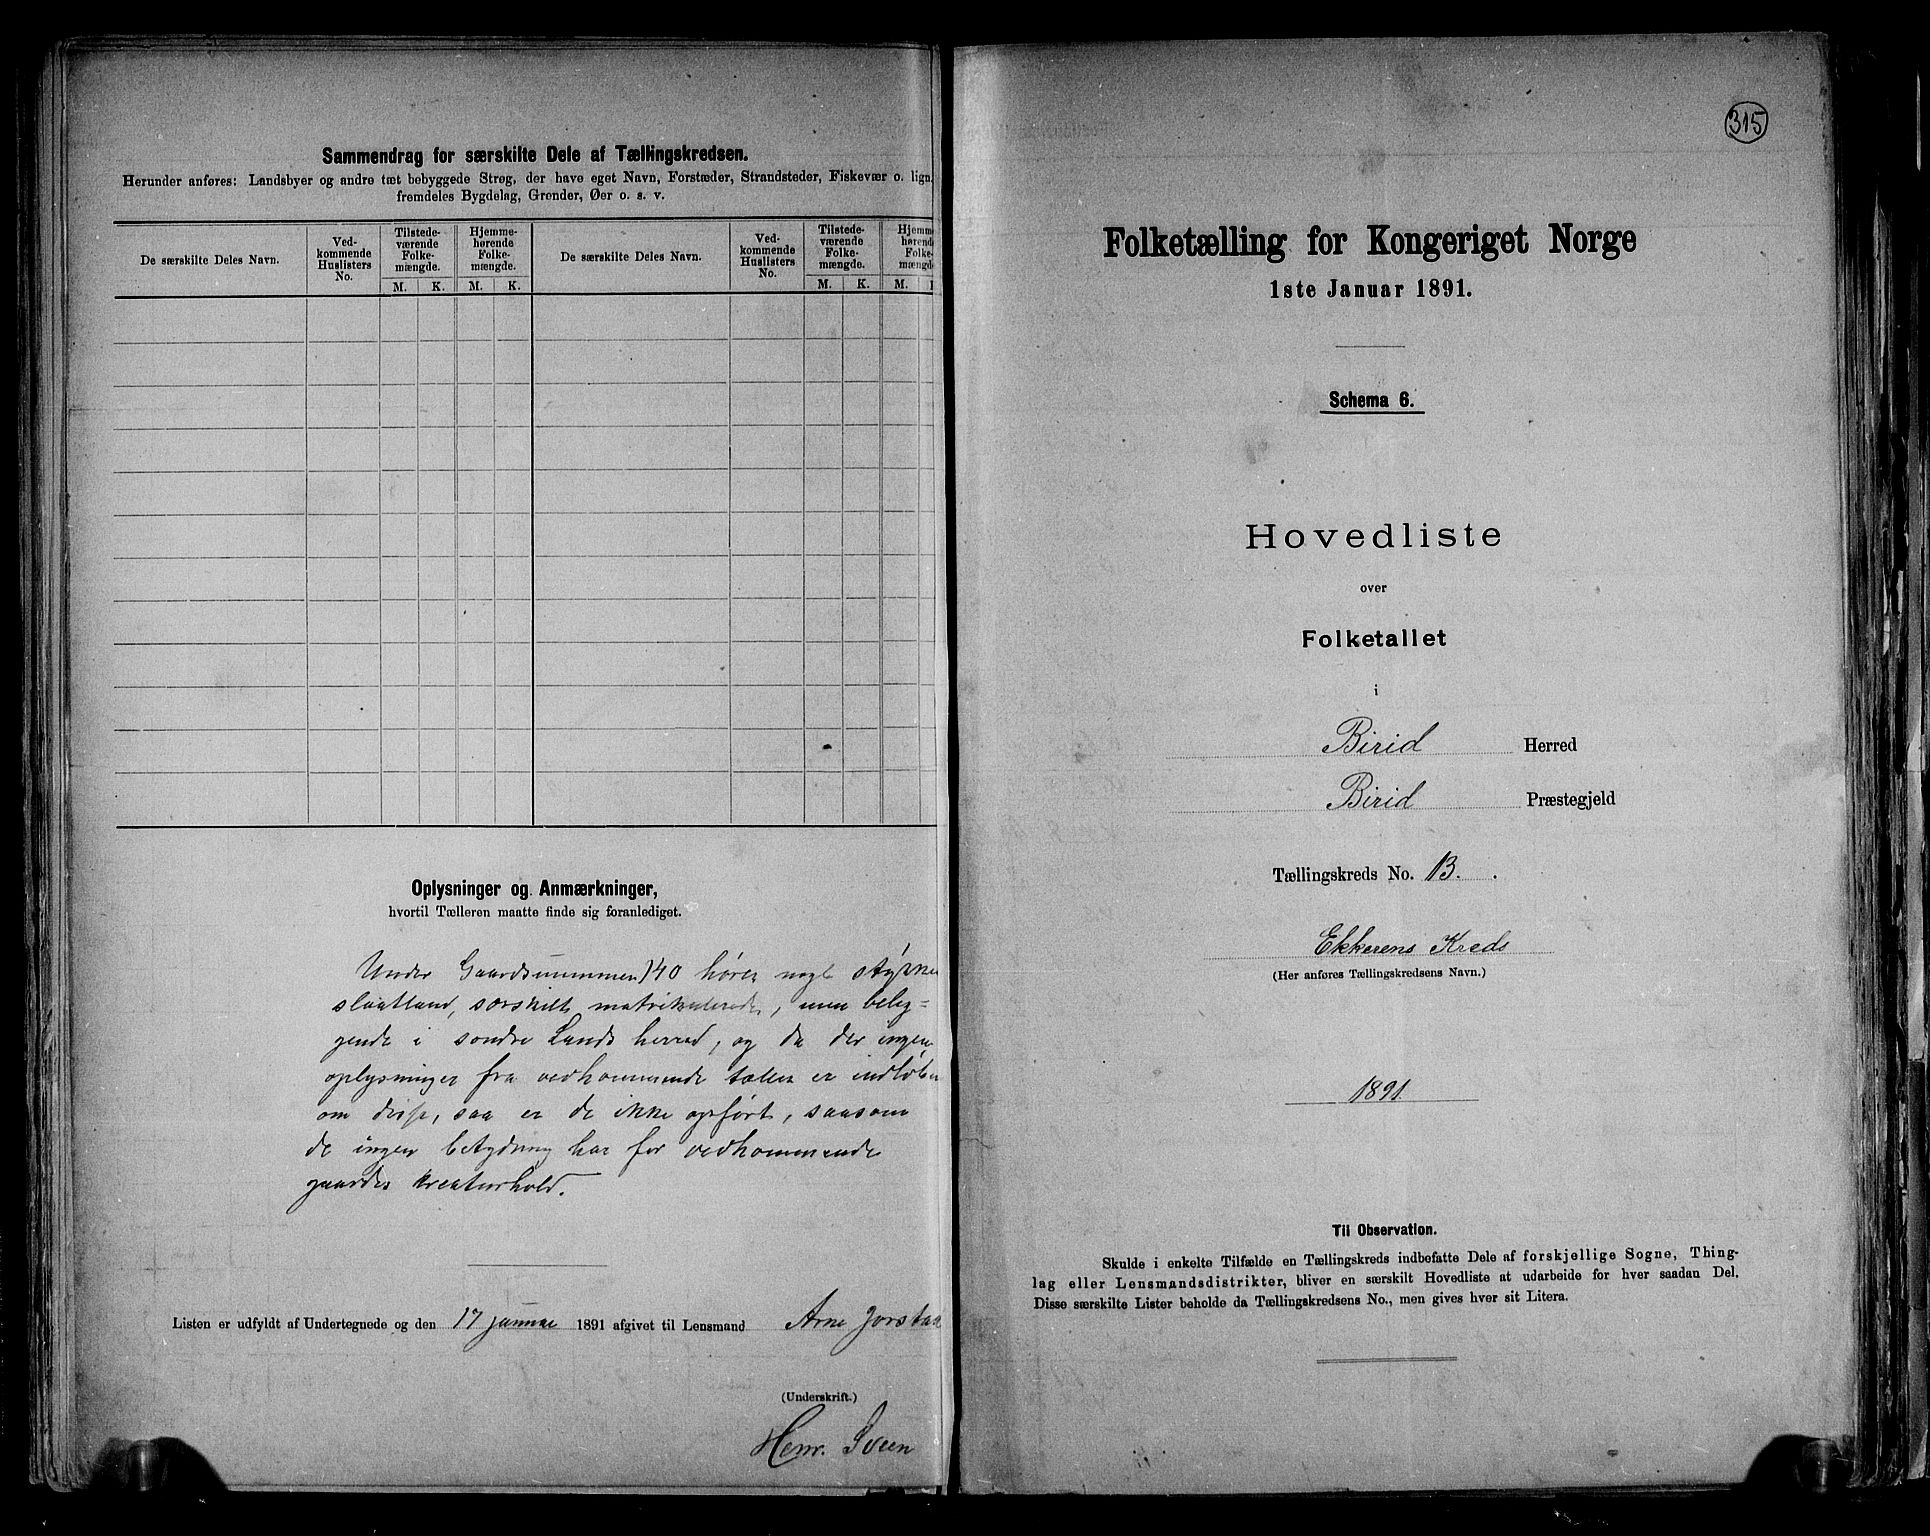 Sammendrag for særskilte Dele af Tællingskredsen.
Herunder anføres: Landsbyer og andre tæt bebyggede Strøg, der have eget Navn, Forstæder, Strandsteder, Fiskevær o. lign.
fremdeles Bygdelag, Grender, Øer o. s. v.
De særskilte Deles Navn.
Ved-
kommende
Huslisters
No.
Tilstede-
værende
Folke-
mængde.
Hjemme-
hørende
Folke-
mængde.
M. K. M. K.
De særskilte Deles Navn.
Ved-
kommende
Huslisters
No.
Tilstede-
værende
Folke-
mængde.
Hjemme
hørende
Folke-
mængde
M. K. M.
Oplysninger og Anmærkninger,
hvortil Tælleren maatte finde sig foranlediget.
Under Gaardsnummer 140 hører
slaatland, særskilt matrikulerede, men belig=
gende i søndre Lands herred, og da der ingen
oplysninger fra vedkommende tæller er
om disse, saa er de ikke opført, saasom
de ingen betydning har for vedkommende
gaardes kreaturhold.
Listen er udfyldt af Undertegnede og den 17 januar 1891 afgivet til Lensmand Arne Jorstad
(Underskrift.)
Henr. Sveen
315
Folketælling for Kongeriget Norge
1ste Januar 1891.
Schema 6.
Hovedliste
over
Folketallet
i
Birid Herred
Birid Præstegjeld
Tællingskreds No. 13.
Ekkerens Kreds
(Her anføres Tællingskredsens Navn.)
1891.
Til Observation.
Skulde i enkelte Tilfælde en Tællingskreds indbefatte Dele af forskjellige Sogne, Thing-
lag eller Lensmandsdistrikter, bliver en særskilt Hovedliste at udarbeide for hver saadan Del.
Disse særskilte Lister beholde da Tællingskredsens No., men gives hver sit Litera.